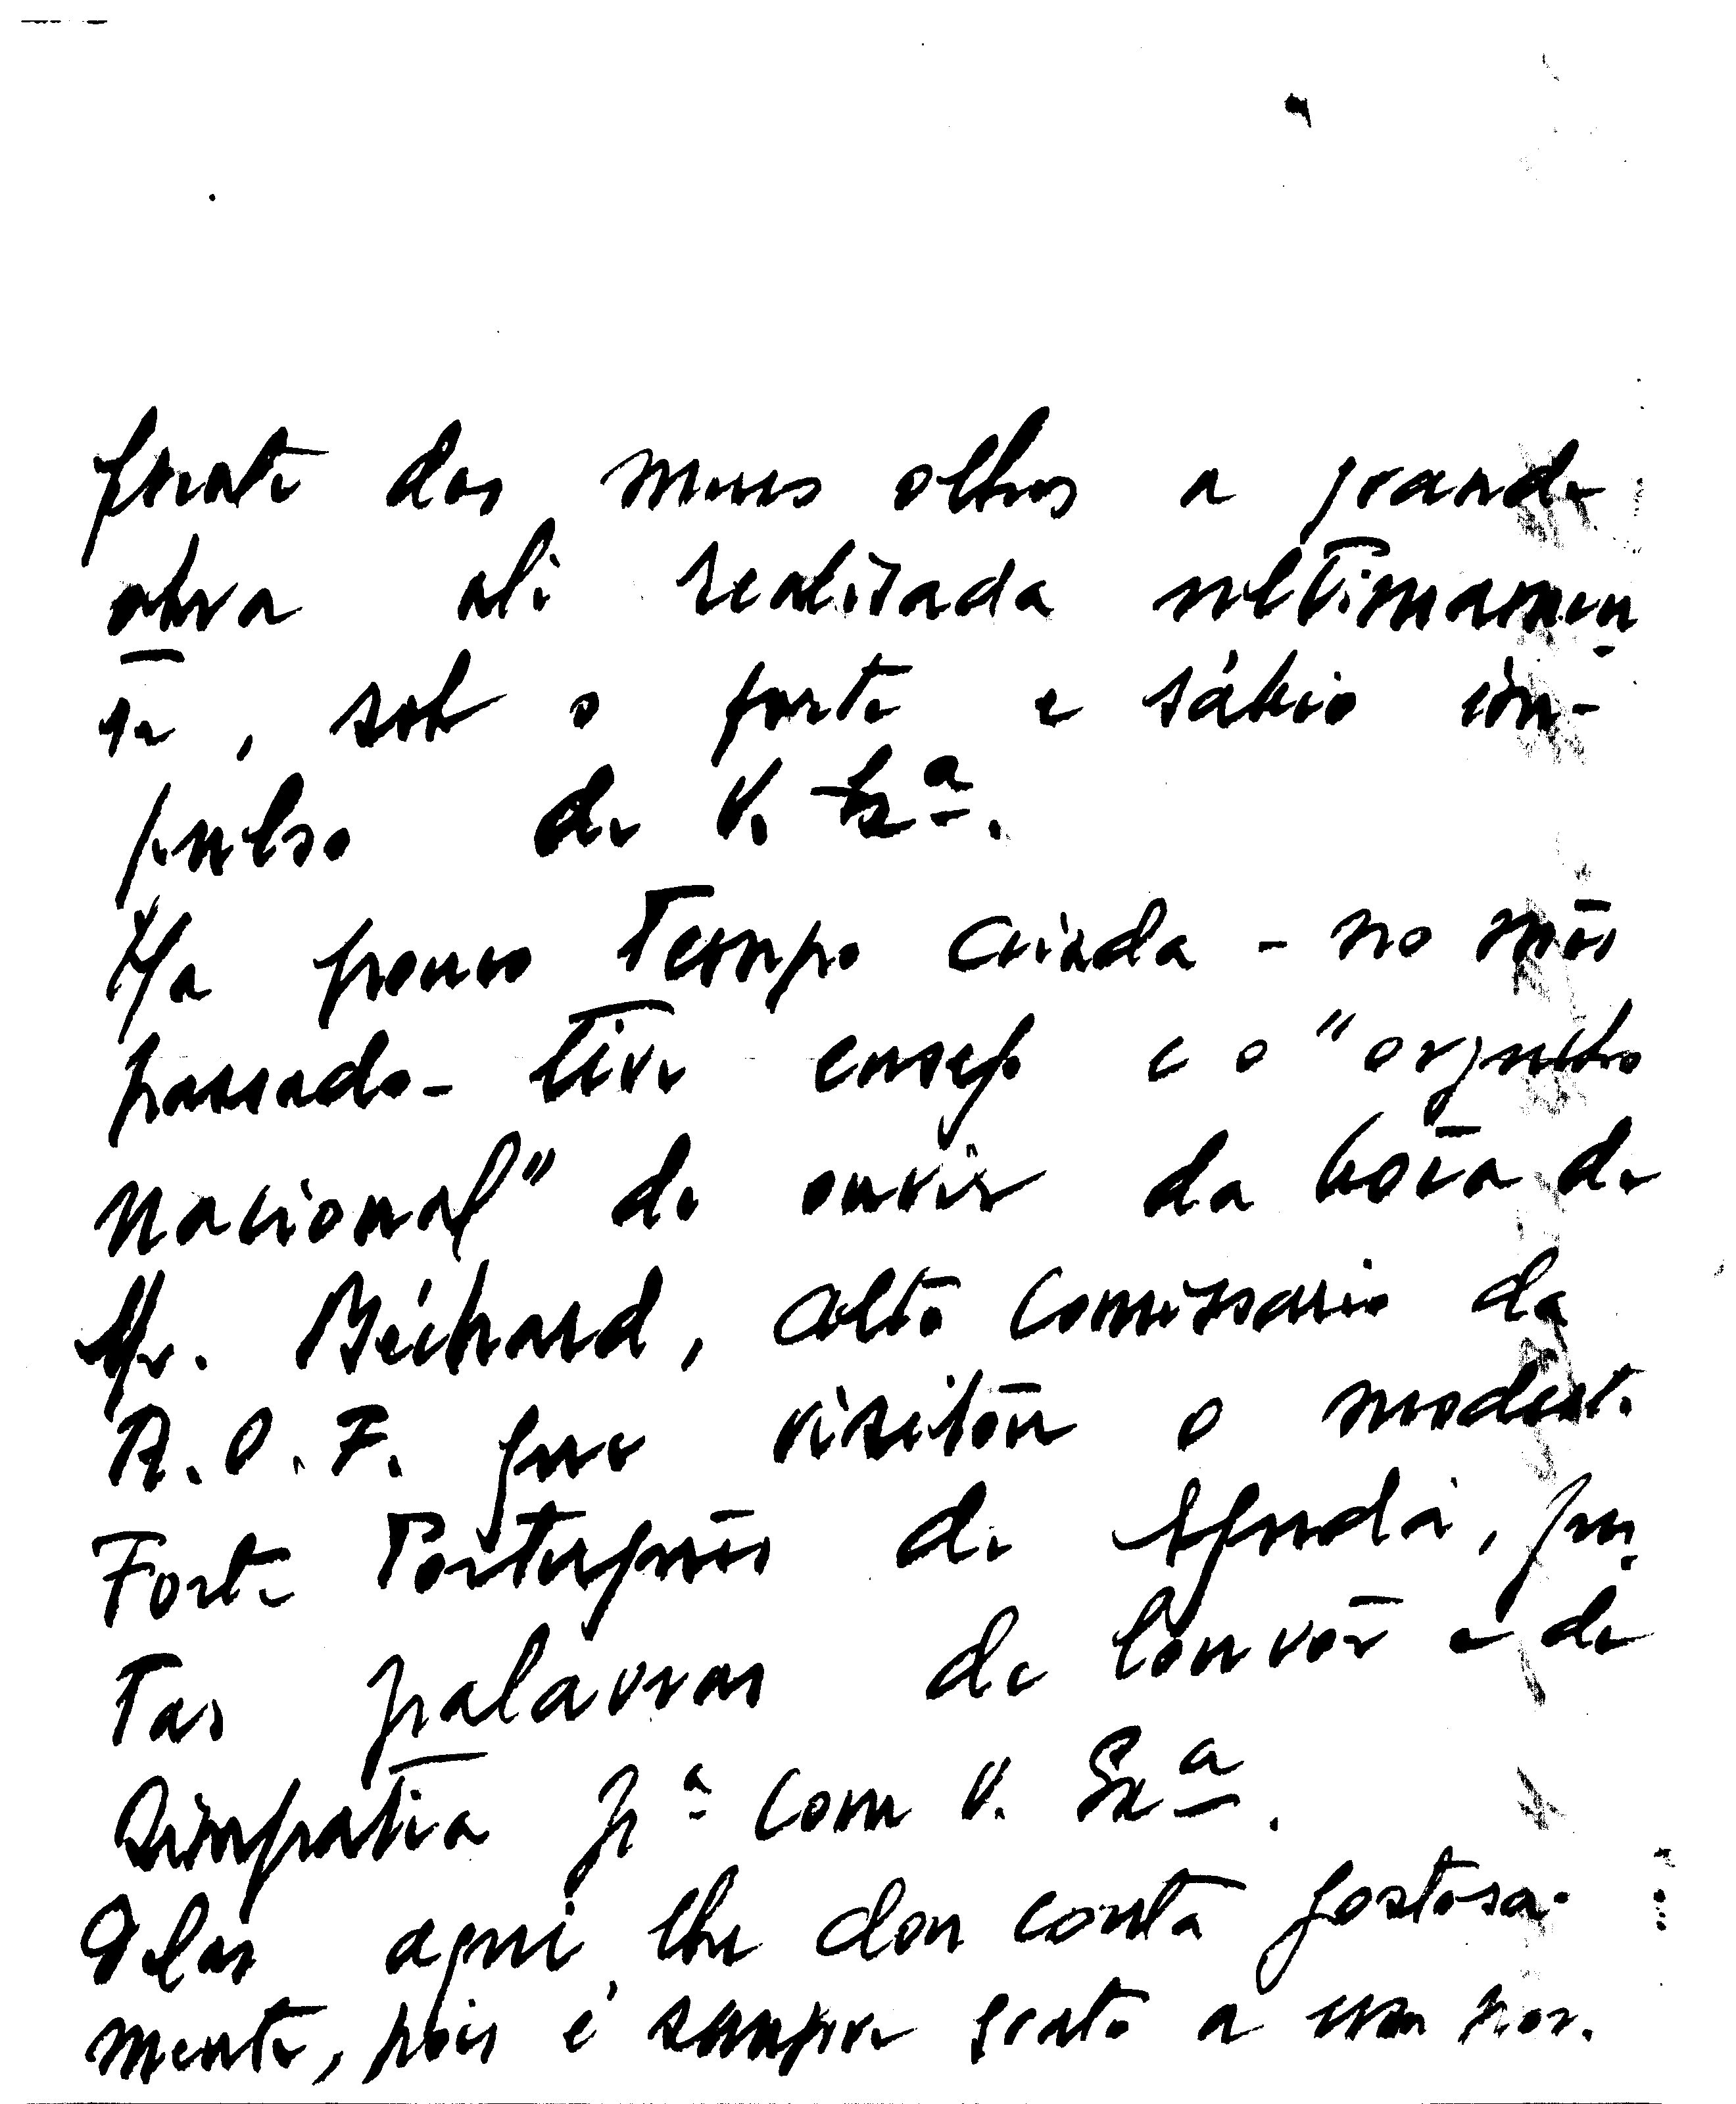 frente dos meus olhos a grande
obra ali realisada ultimamen-
te, sob o forte e sábio im-
pulso de V. Exª.
Ha pouco tempo ainda - no mês
passado - tive ensejo e o "orgulho
nacional" de ouvir da bôca de
Mr. Béchard, alto comissario da
A. O. F. que visitou o modesto
Forte Português de Ajudá, jus-
tas palavras de louvôr e de
Simpatia pª com V. Exª.
Delas aqui lhe dou conta gostosa-
mente, pois é sempre grato a um por-